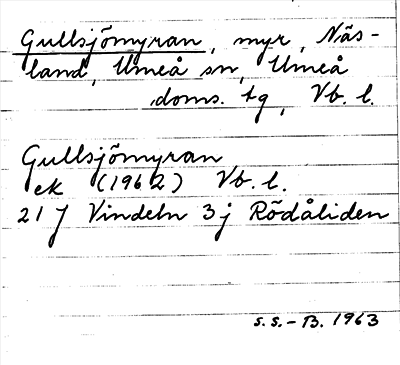 Gullsjömyran, myr, Näs-
land, Umeå sn, Umeå
doms. tg, Vb. l.
Gullsjömyran
ek (1962) Vb. l.
21 J Vindeln 3j Rödåliden
S. S. - B. 1963